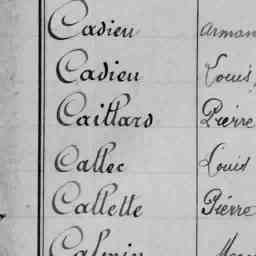 Cadieu Arman
Cadieu Louis,
Caillard Pierre
Callec Louis
Callette Pierre
Calmin